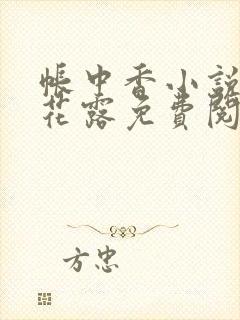 帳中香小說
花露免費閱
方忠